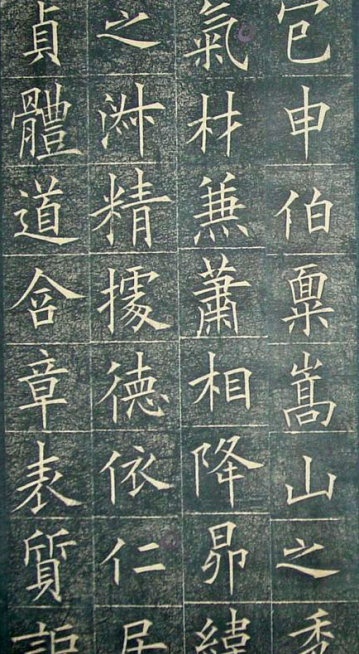 申伯稟嵩山之秀
氣材兼蕭相降昴緯
之淑精據德依仁居
貞體道含章表質詎